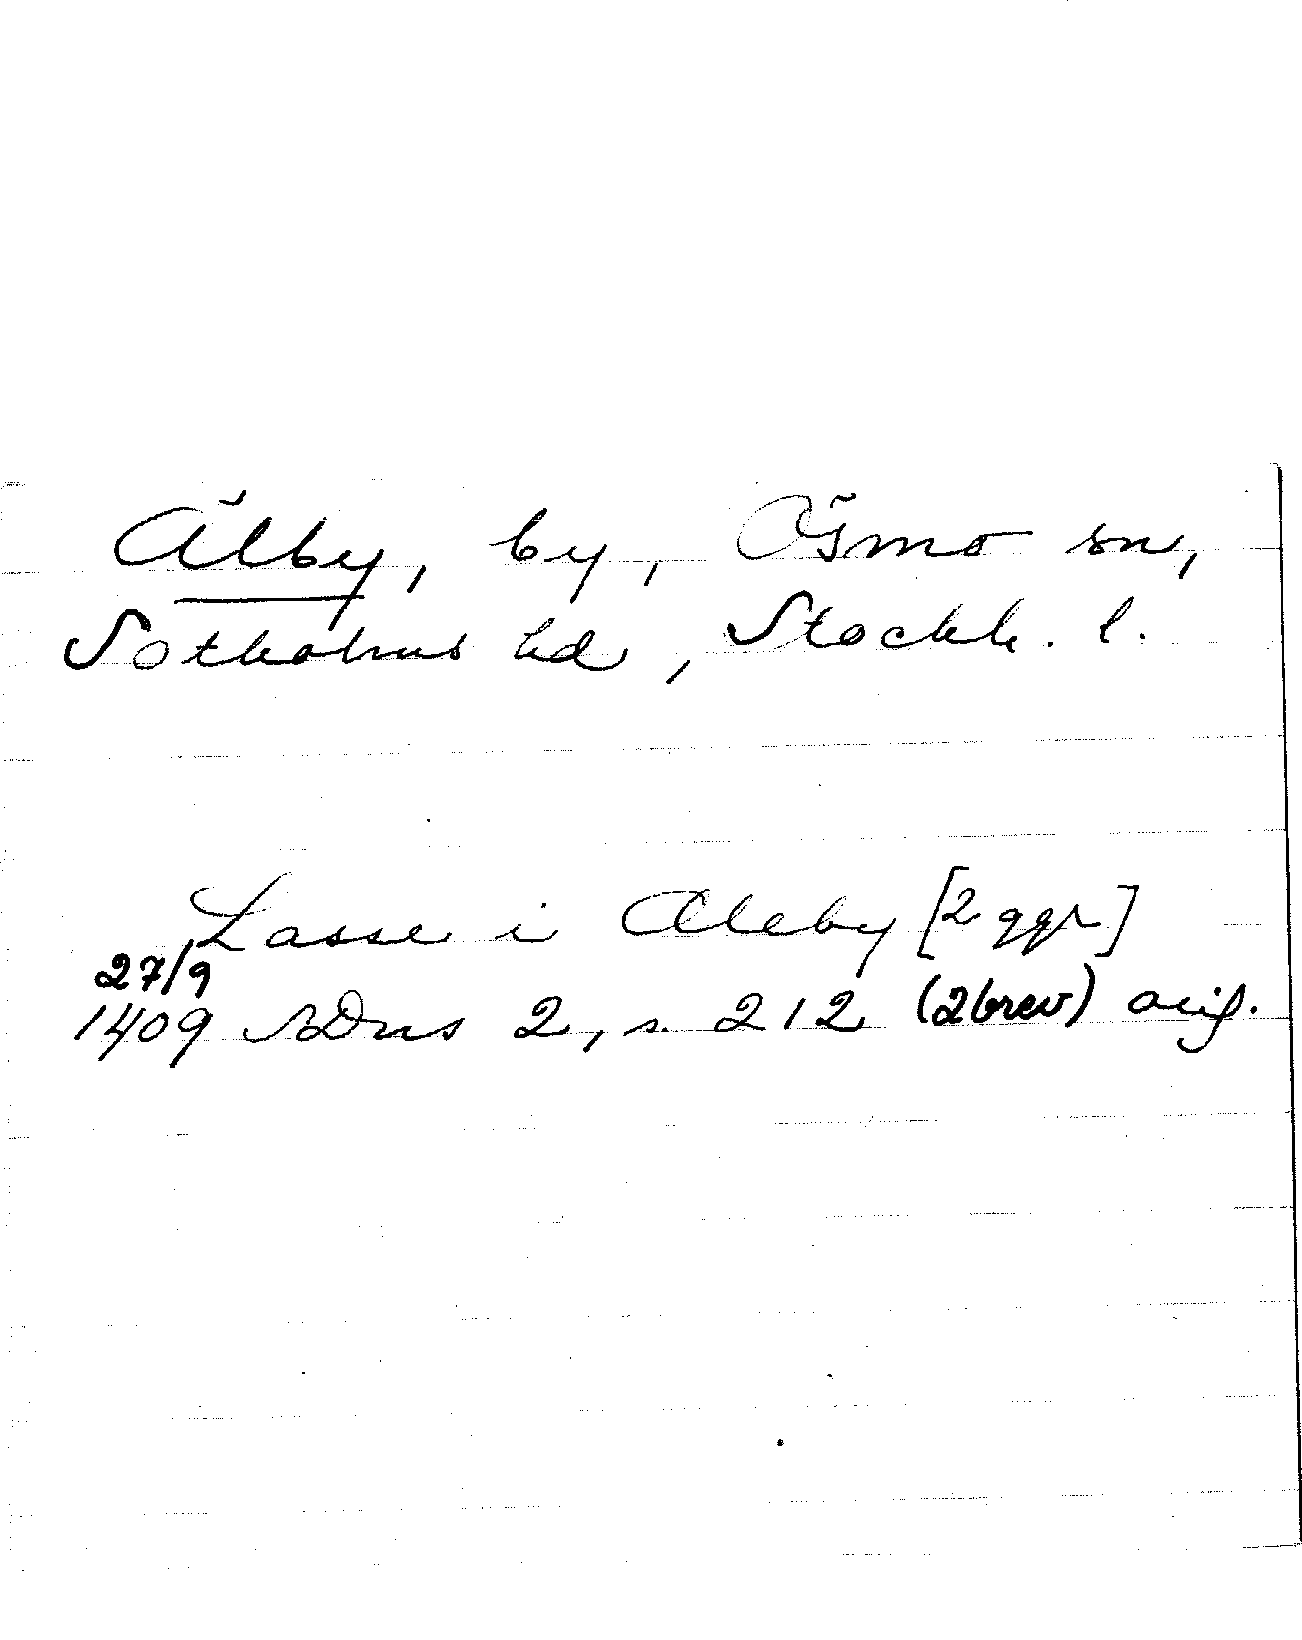 Älby, by, Ösmo sn,
Sotholms hd, Stockh. l.
Lasse i Aleby [2 ggr]
27/9
1409 SDns 2, s. 212 (2 brev) orig.